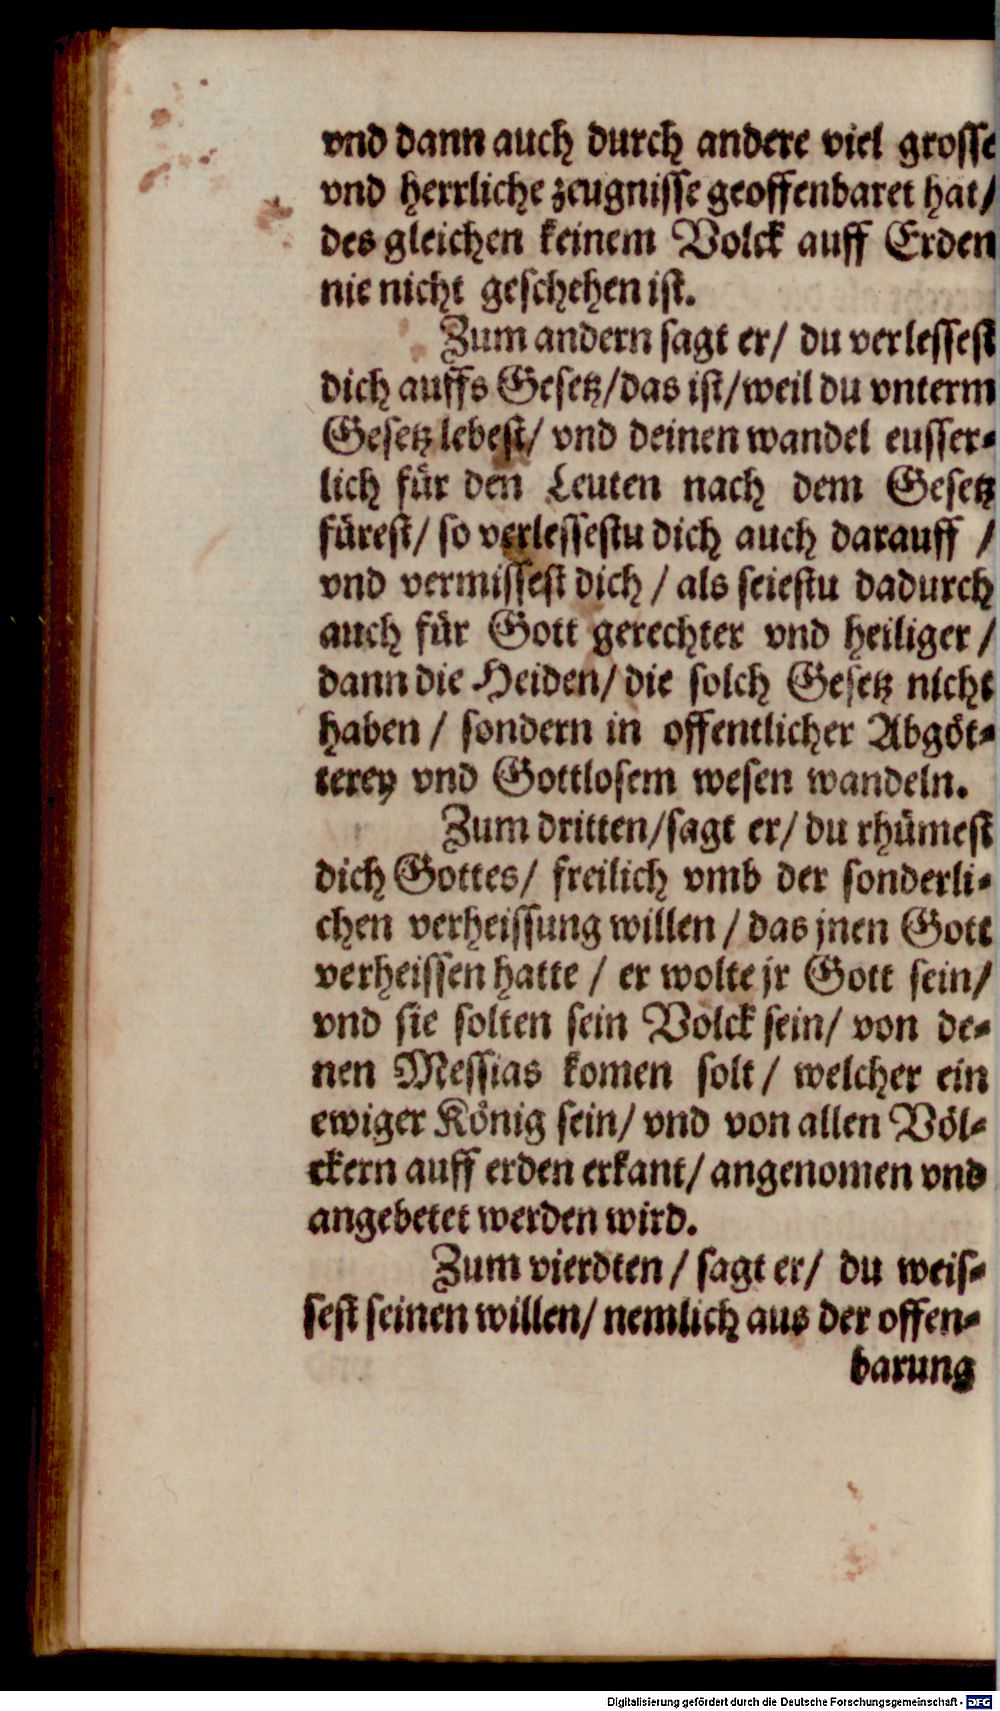 vnd dann auch durch andere viel grosse
vnd herrliche zeugnisse geoffenbaret hat/
des gleichen keinem Volck auff Erden
nie nicht geschehen ist.
Zum andern sagt er/ du verlessest
dich auffs Gesetz/das ist/weil du vnterm
Gesetz lebest/ vnd deinen wandel eusser-
lich für den Leuten nach dem Gesetz
fürest/ so verlessestu dich auch darauff /
vnd vermissest dich / als seiestu dadurch
auch für Gott gerechter vnd heiliger /
dann die Heiden/ die solch Gesetz nicht
haben / sondern in offentlicher Abgöt-
terey vnd Gottlosem wesen wandeln.
Zum dritten/sagt er/ du rhümest
dich Gottes/ freilich vmb der sonderli-
chen verheissung willen / das jnen Gott
verheissen hatte / er wolte jr Gott sein/
vnd sie solten sein Volck sein/ von de-
nen Messias komen solt / welcher ein
ewiger König sein/ vnd von allen Völ-
ckern auff erden erkant/ angenomen vnd
angebetet werden wird.
Zum vierdten / sagt er/ du weis-
sest seinen willen/ nemlich aus der offen-
barung
Digitalisierung gefördert durch die Deutsche Forschungsgemeinschaft - DFG